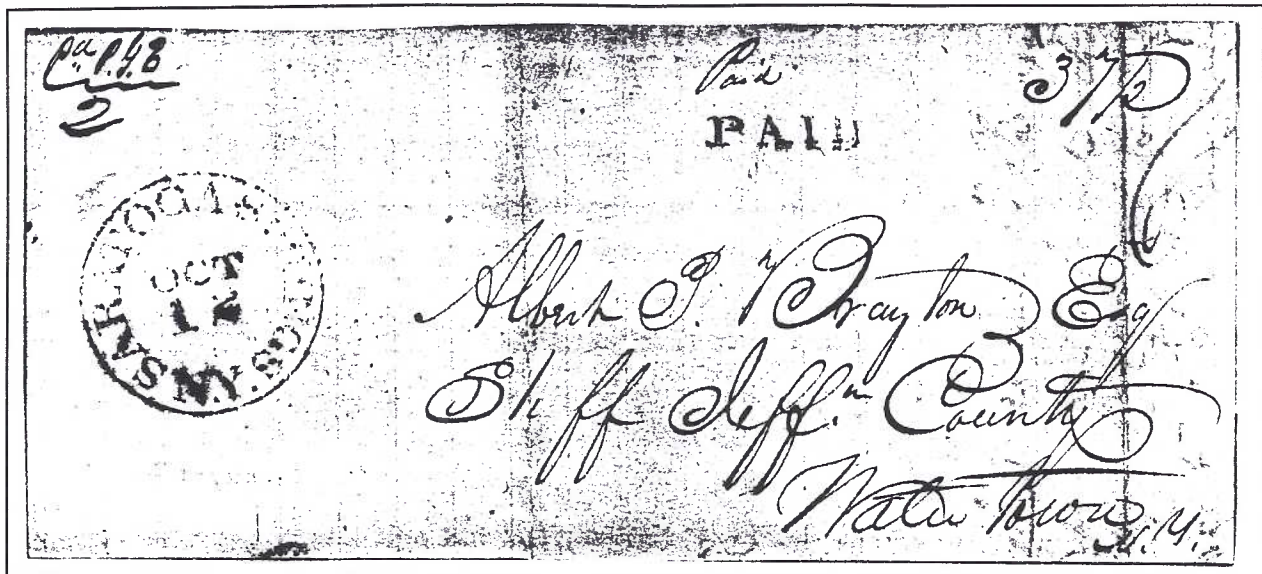 Pd P.J.8
2
Paid
PAID
37½
SARATOGA SPRINGS. N.Y
OCT
12
Albert P. Brayton Esq
Sheff Jeffn County
Water town
N.Y.